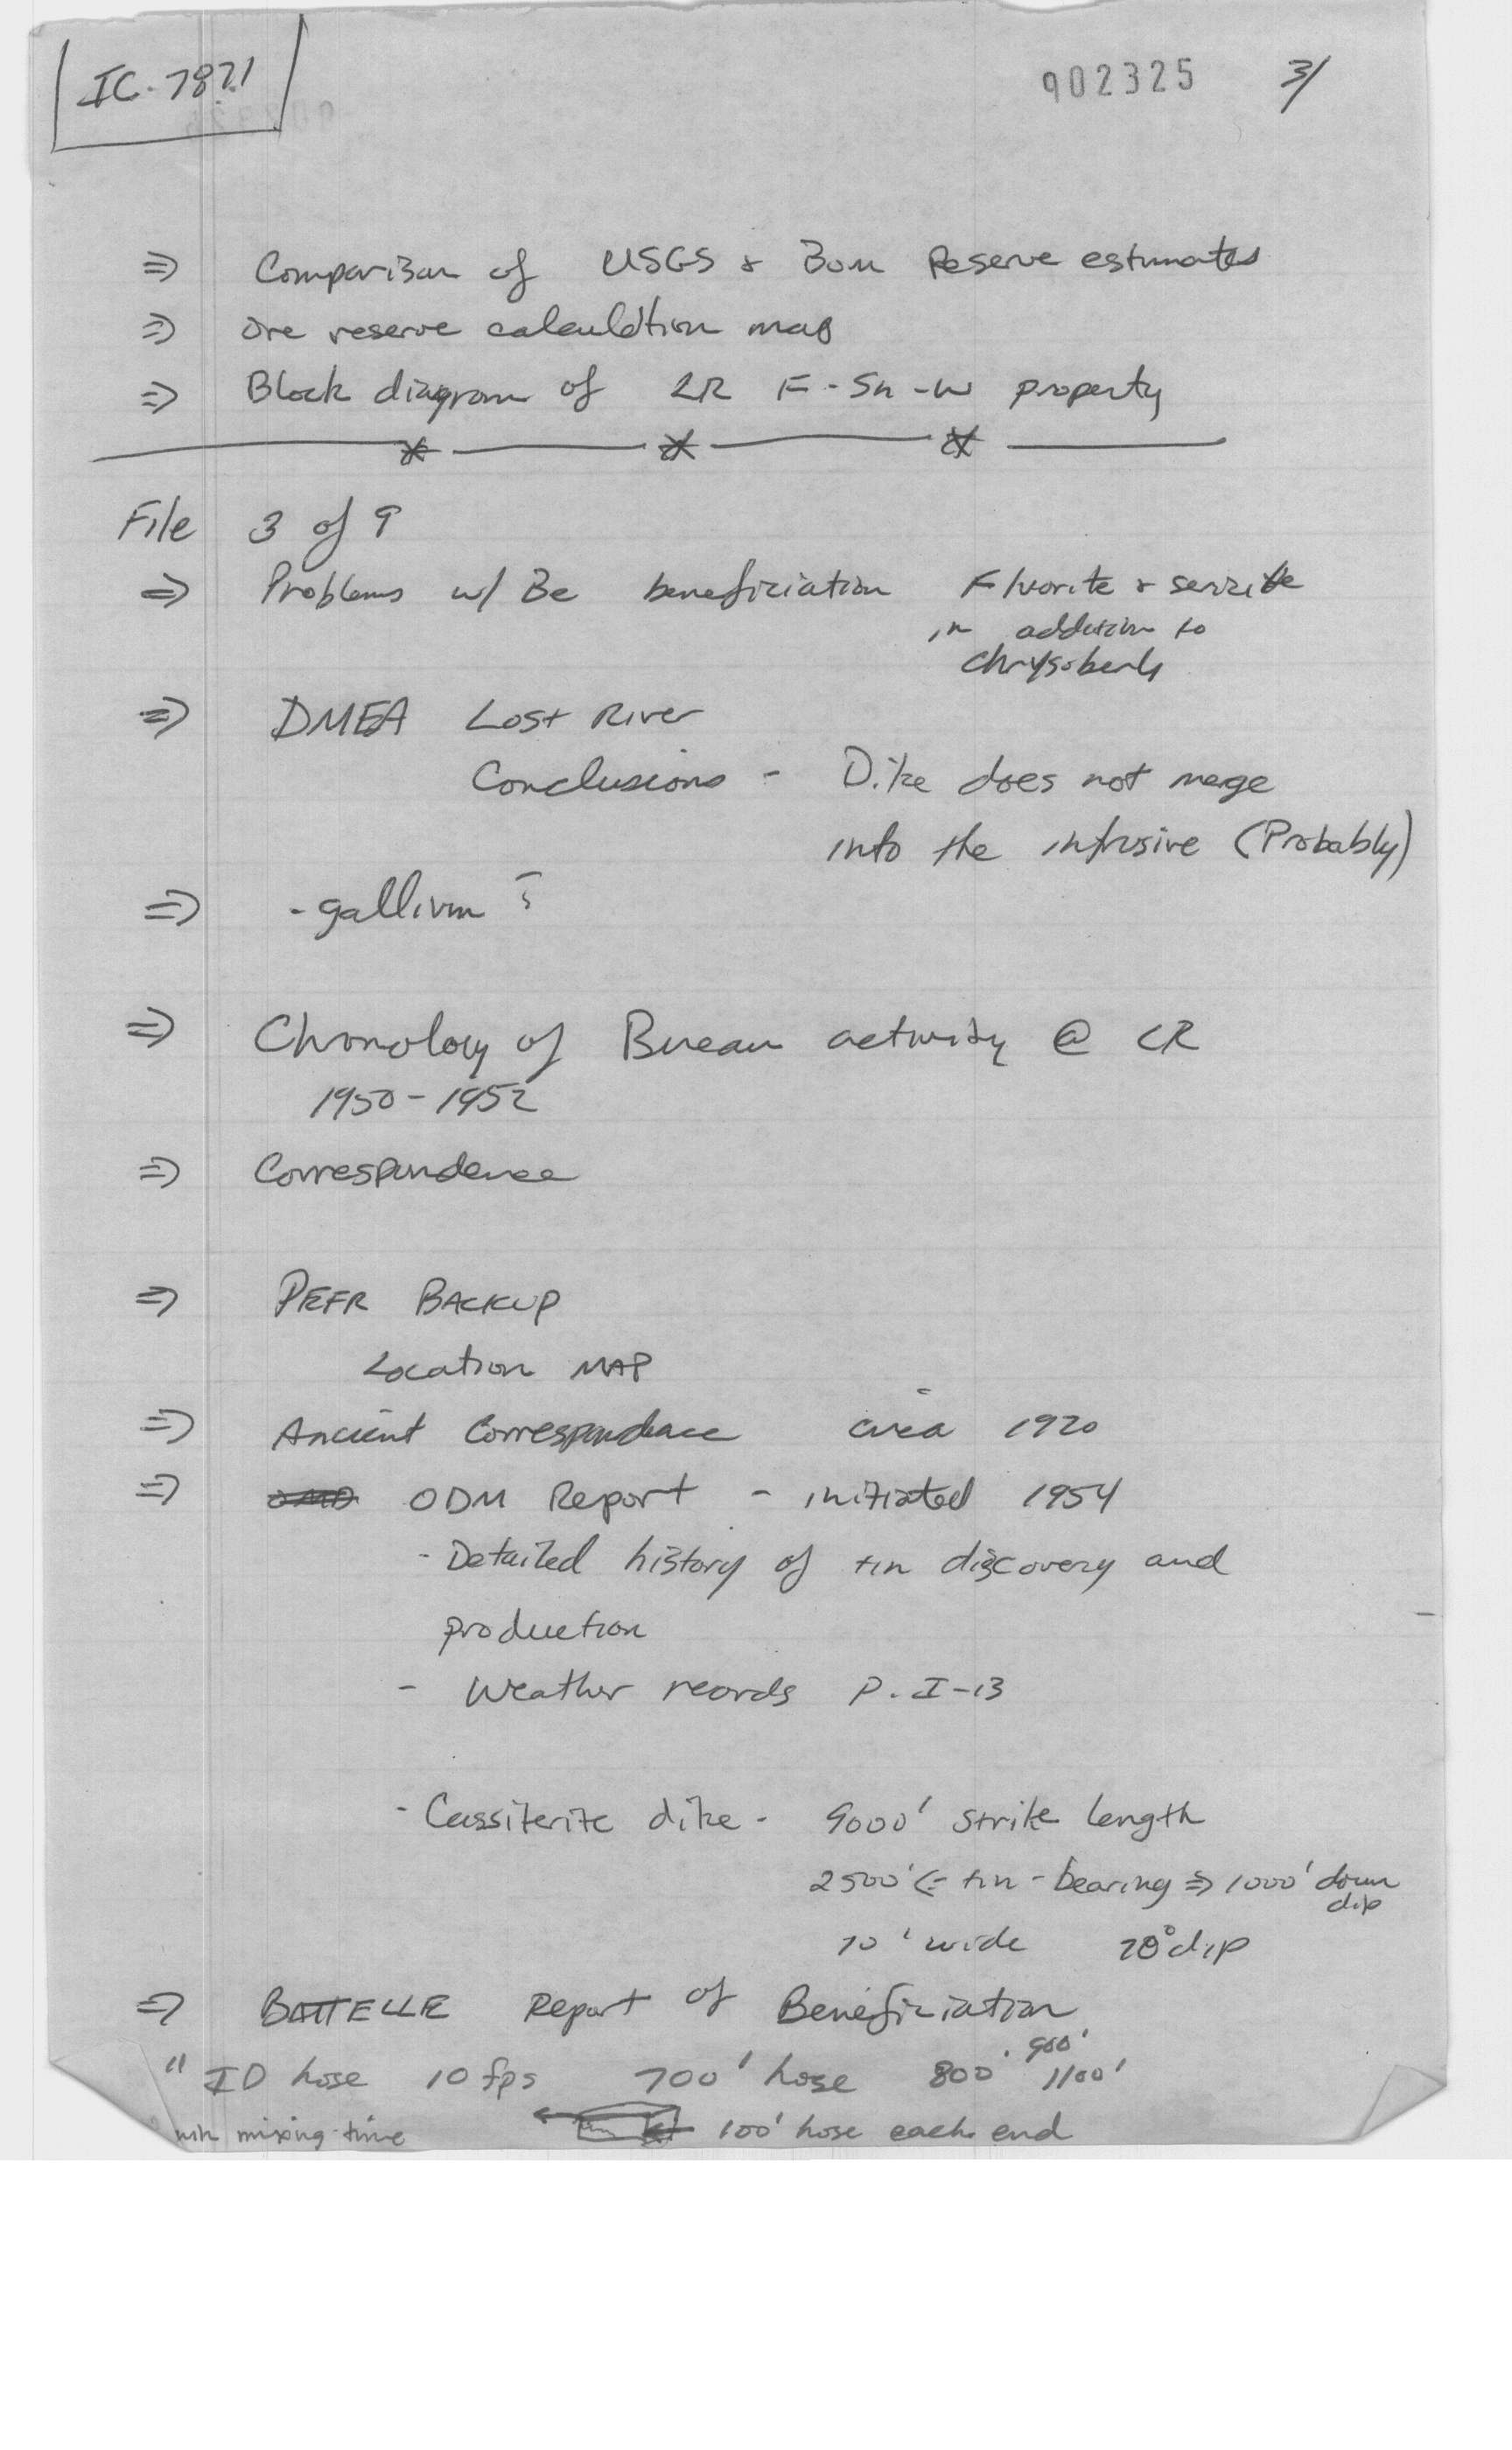 IC. 7871
902325 3/
⇒ Comparison of USGS & Bom Reserve estimates
⇒ Ore reserve calculation map
⇒ Block diagram of LR F-Sn-W property
File 3 of 9
⇒ Problems w/ Be beneficiation Fluorite & sericite
in addition to
Chrysoberyl
⇒ DMEA Lost River
Conclusions - Dike does not merge
into the intrusive (Probably)
⇒ - gallium ?
⇒ Chronology of Bureau activity @ LR
1950-1952
⇒ Correspondence
⇒ PEFR BACKUP
Location MAP
⇒ Ancient Correspondence circa 1920
⇒ ODM Report - initiated 1954
- Detailed history of tin discovery and
production
- Weather records P. I-13
- Cassiterite dike - 9000' strike length
2500' ⇐ tin-bearing ⇒ 1000' down
dip
10' wide 70° dip
⇒ BATTELLE Report of Beneficiation
900'
" ID hose 10 fps 700' hose 800' 1100'
min mixing time 100' hose each end